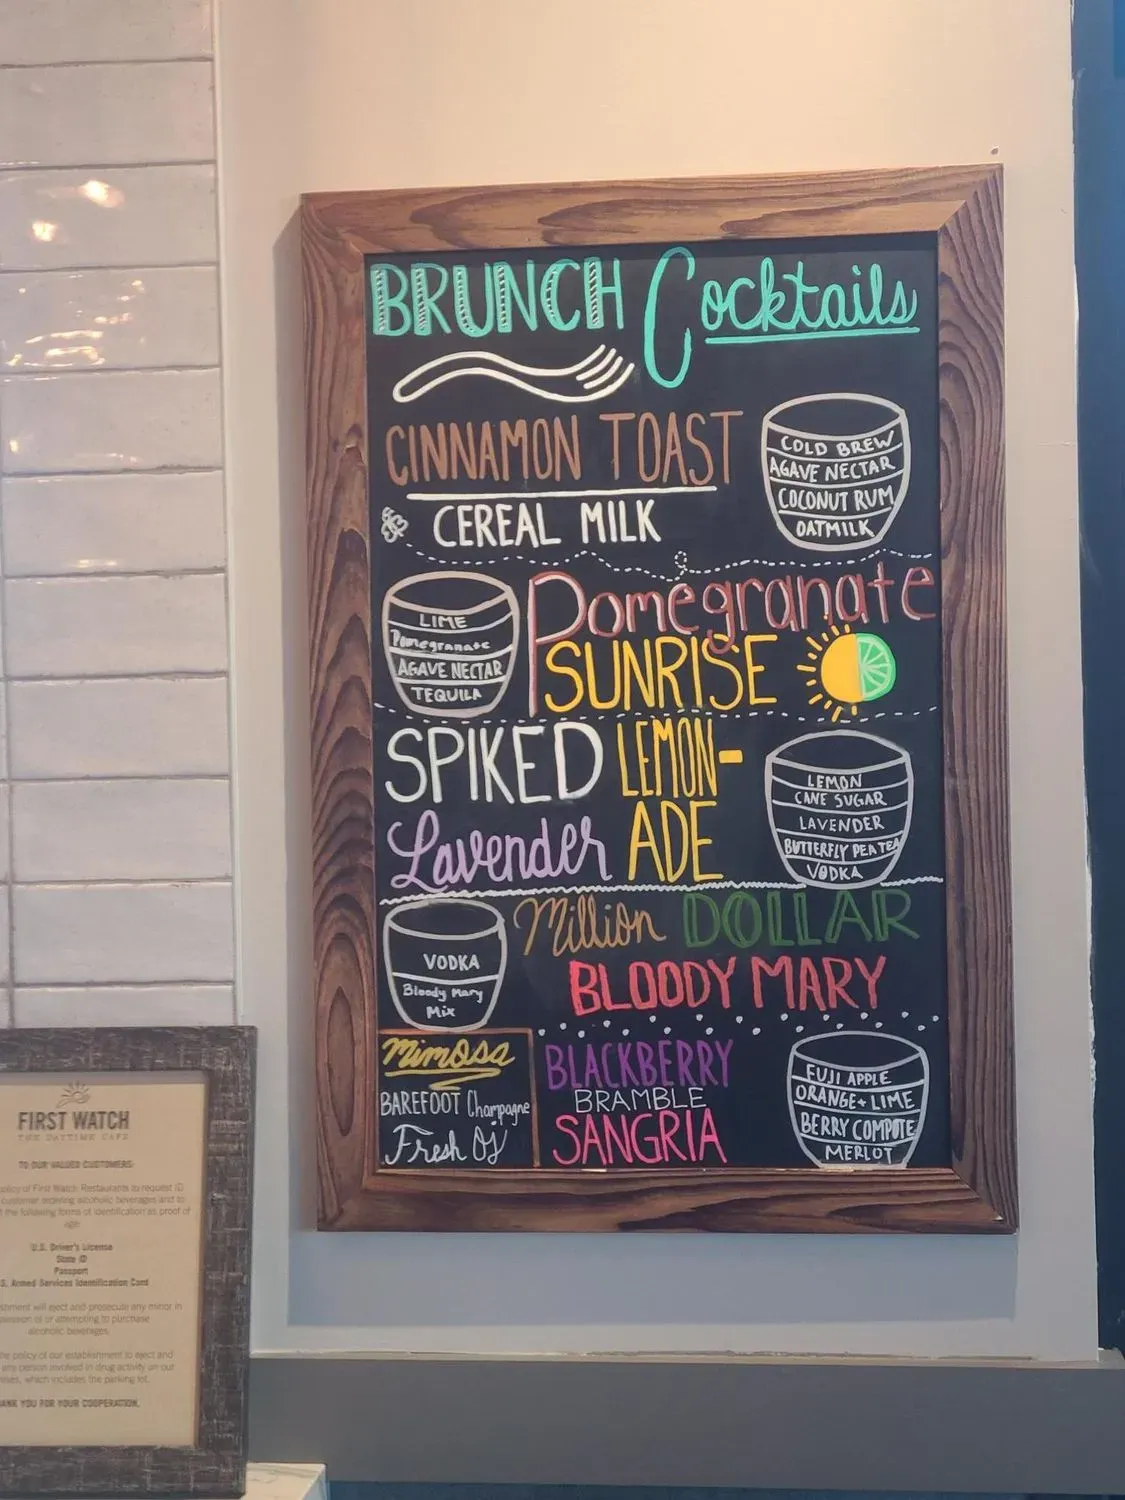 BRUNCH Cocktails
CINNAMON TOAST
CEREAL MILK
COLD BREW
AGAVE NECTAR
COCONUT RUM
OATMILK
Pomegranate
SUNRISE
LIME
Pomegranate
AGAVE NECTAR
TEQUILA
SPIKED LEMON-
Lavender ADE
LEMON
CANE SUGAR
LAVENDER
BUTTERFLY PEA TEA
VODKA
Million DOLLAR
BLOODY MARY
VODKA
Bloody Mary
Mix
mimosa
BAREFOOT Champagne
Fresh OJ
BLACKBERRY
BRAMBLE
SANGRIA
FUJI APPLE
ORANGE + LIME
BERRY COMPOTE
MERLOT
FIRST WATCH
THE DAYTIME CAFE
TO OUR VALUED CUSTOMERS:
policy of First Watch Restaurants to request ID
customer ordering alcoholic beverages and to
the following forms of identification as proof of
age:
U.S. Driver's License
State ID
Passport
S. Armed Services Identification Card
will eject and prosecute any minor in
of or attempting to purchase
alcoholic beverages.
the policy of our establishment to eject and
any person involved in drug activity on our
which includes the parking lot.
YOU FOR YOUR COOPERATION.